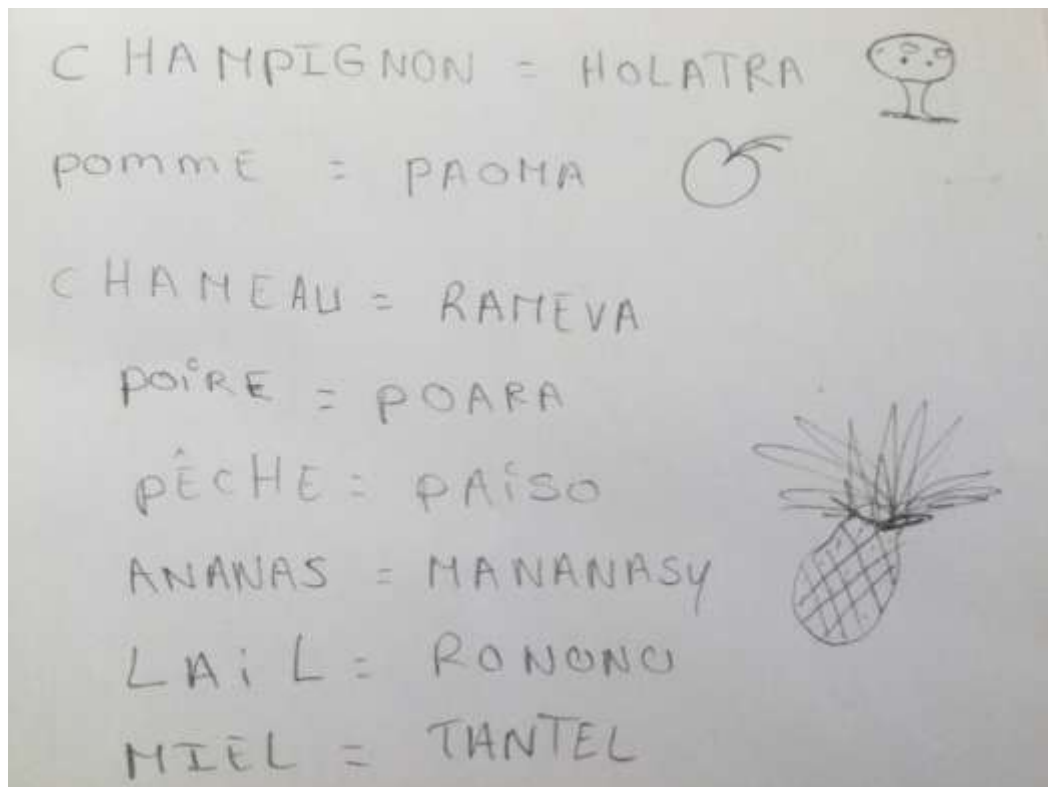 CHAMPIGNON = HOLATRA
pommE = PAOMA
CHAMEAU = RAMEVA
POiRE = POARA
PÊCHE = PAiSO
ANANAS = MANANASY
LAiL = RONONO
MIEL = TANTEL